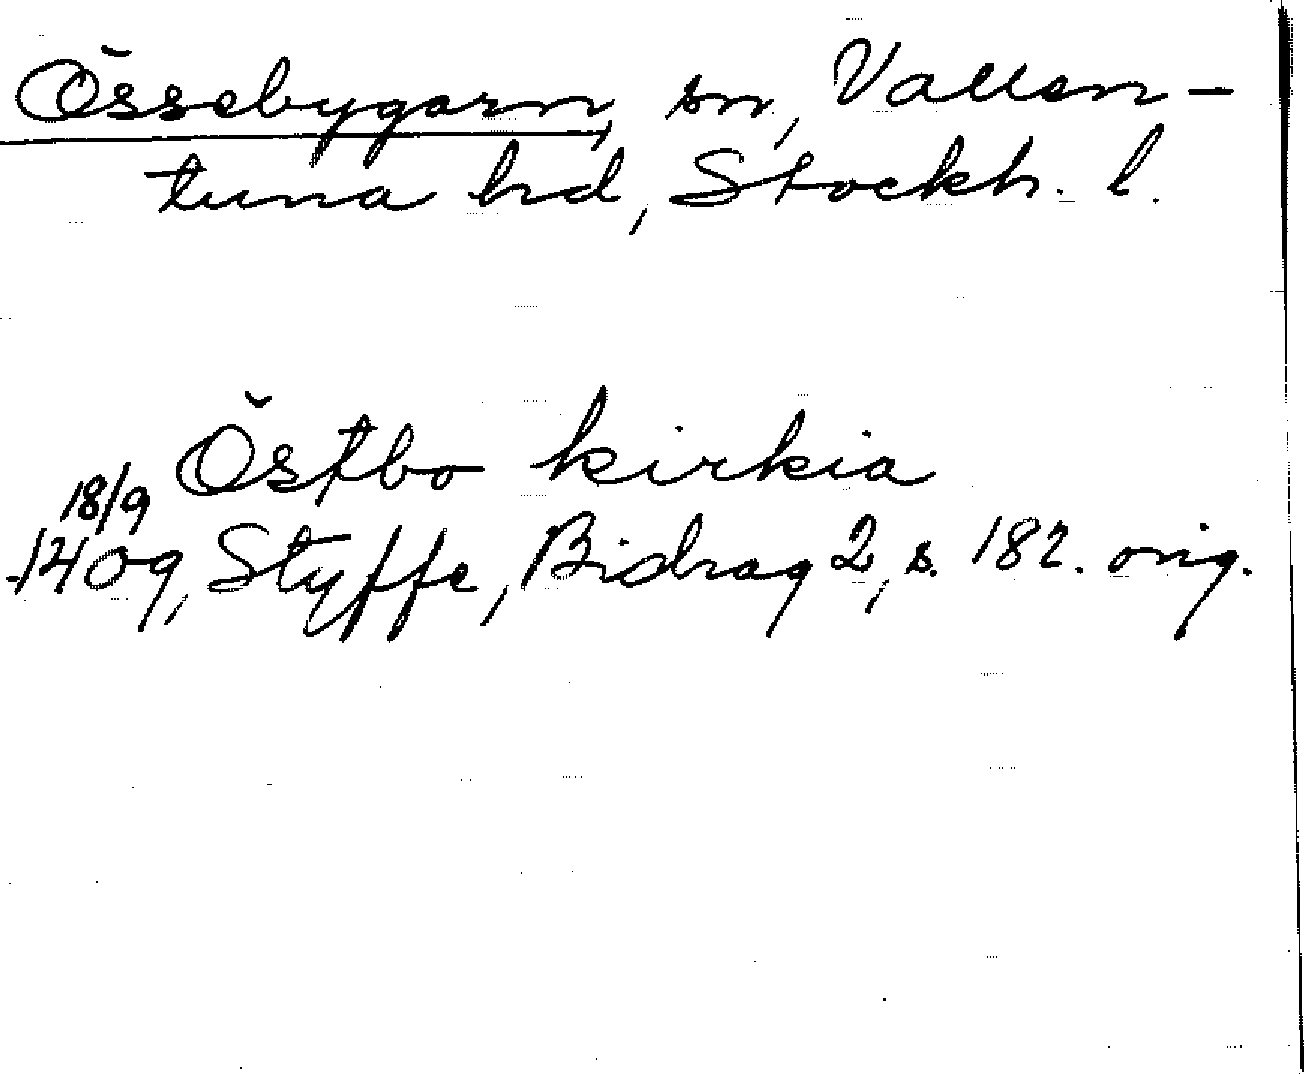 Össebygarn, sn, Vallen-
tuna hd, Stockh. l.
Östbo kirkia
18/9
1409, Styffe, Bidrag 2, s. 182. orig.